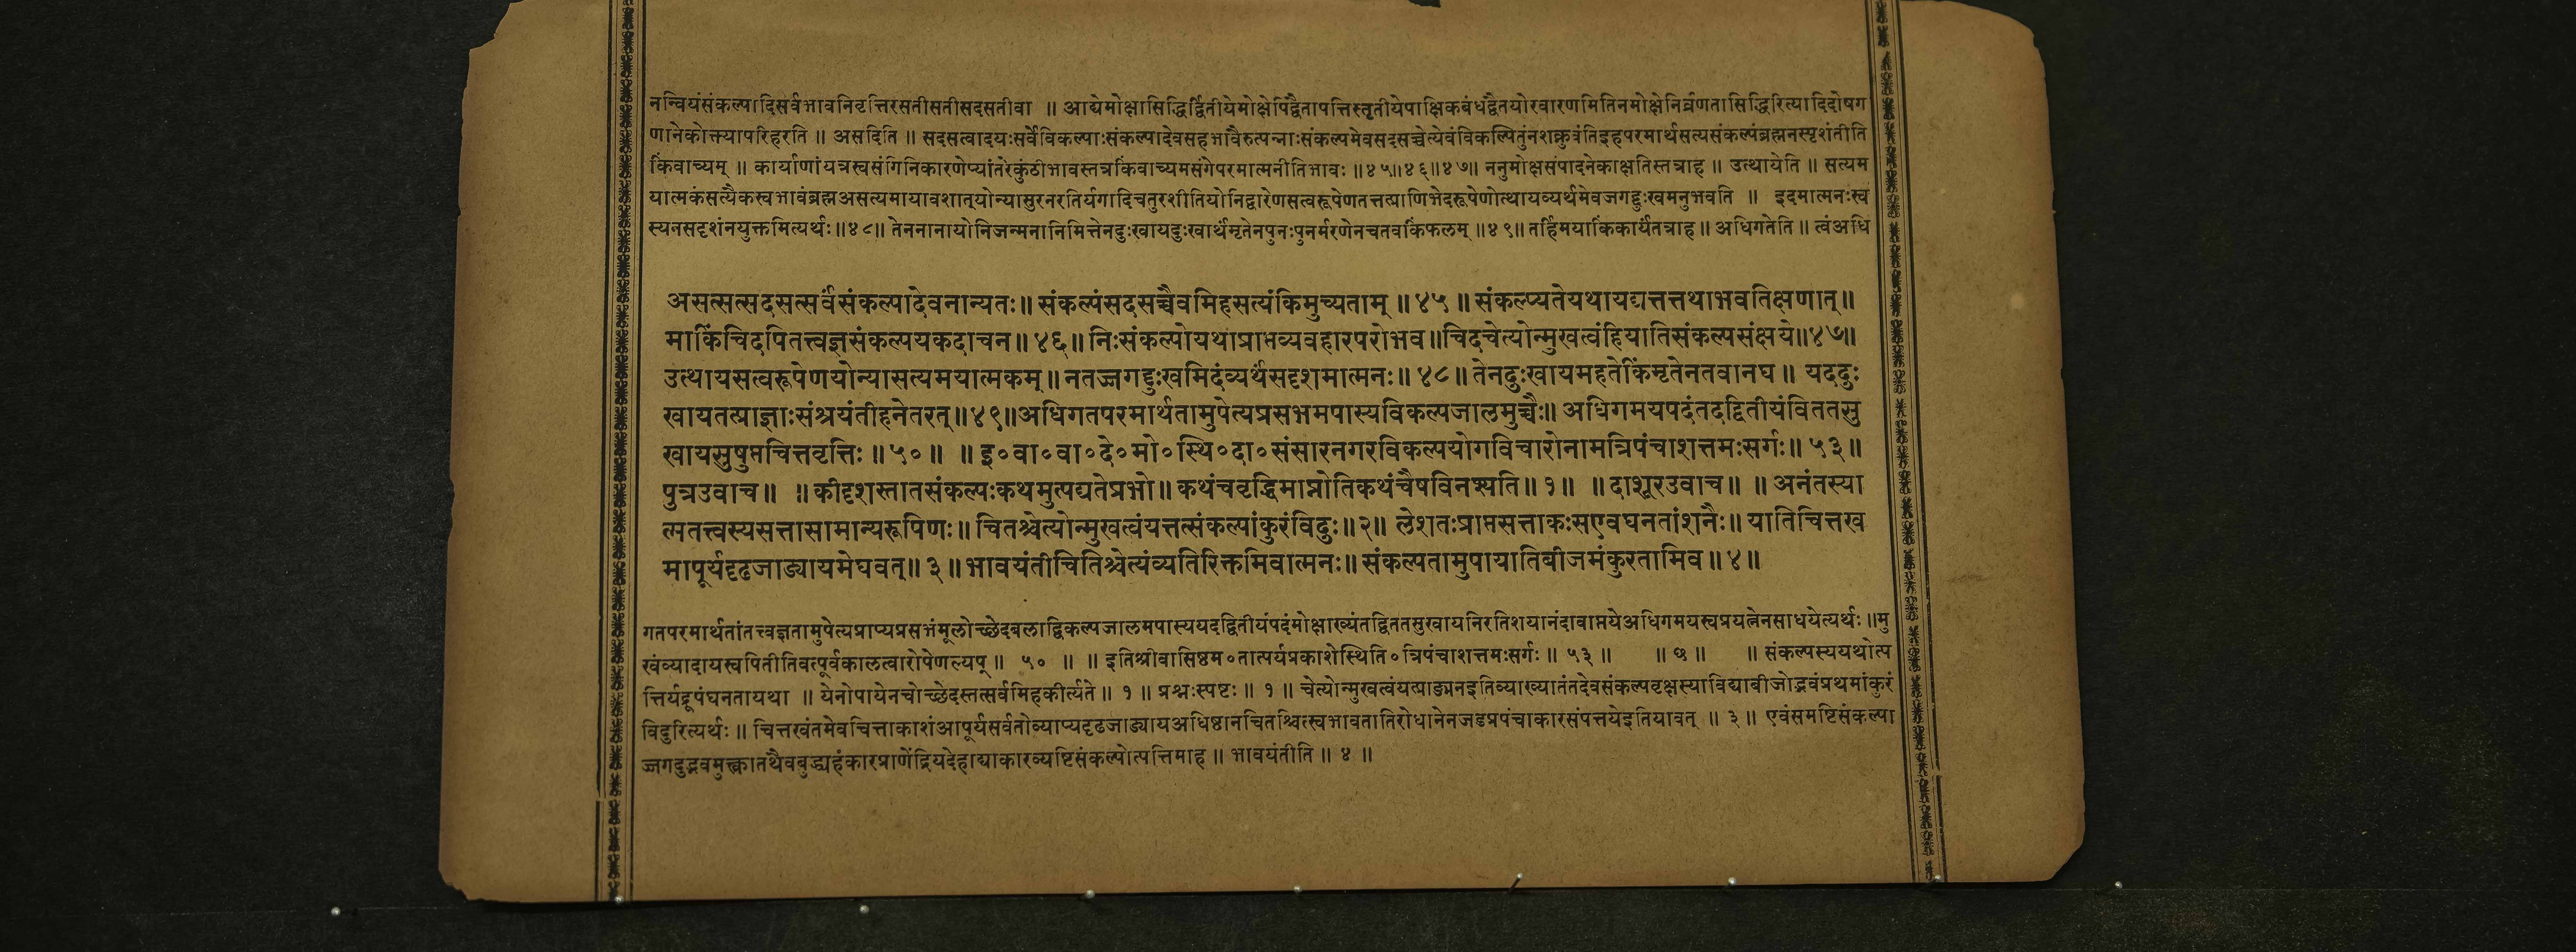 नन्वियंसंकल्पादिसर्वभावनिवृत्तिरसतीसतीसदसतीवा ॥ आद्येमोक्षासिद्धिर्द्वितीयेमोक्षेपिद्वैतापत्तिस्तृतीयेपाक्षिकबंधद्वैतयोरवारणमितिनमोक्षेनिर्व्रणतासिद्धिरित्यादिदोषग
णानेकोक्त्यापरिहरति ॥ असदिति ॥ सदसत्वादयःसर्वेविकल्पाःसंकल्पादेवसहभावैरुत्पन्नाःसंकल्पमेवसदसच्चेत्येवंविकल्पितुंनशक्नुवंतिइहपरमार्थसत्यसंकल्पंब्रह्मनस्पृशंतीति
किंवाच्यम् ॥ कार्याणांयत्रस्वसंगिनिकारणेप्यांतरेकुंठीभावस्तत्रकिंवाच्यमसंगेपरमात्मनीतिभावः ॥४५॥४६॥४७॥ ननुमोक्षसंपादनेकाक्षतिस्तत्राह ॥ उत्थायेति ॥ सत्यम
यात्मकंसत्यैकस्वभावंब्रह्मअसत्यमायावशात्योन्यासुरनरतिर्यगादिचतुरशीतियोनिद्वारेणसत्वरूपेणतत्तत्प्राणिभेदरूपेणोत्थायव्यर्थमेवजगद्दुःखमनुभवति ॥ इदमात्मनःस्व
स्यनसदृशंनयुक्तमित्यर्थः॥४८॥ तेननानायोनिजन्मनानिमित्तेनदुःखायदुःखार्थंमृतेनपुनःपुनर्मरणेनचतवकिंफलम् ॥४९॥ तर्हिमयाकिंकार्यंतत्राह॥ अधिगतेति॥ त्वंअधि
असत्सत्सदसत्सर्वंसंकल्पादेवनान्यतः॥ संकल्पंसदसच्चैवमिहसत्यंकिमुच्यताम् ॥४५॥ संकल्प्यतेयथायद्यत्तत्तथाभवतिक्षणात्॥
माकिंचिदपितत्त्वज्ञसंकल्पयकदाचन॥४६॥ निःसंकल्पोयथाप्राप्तव्यवहारपरोभव॥चिदचेत्योन्मुखत्वंहियातिसंकल्पसंक्षये॥४७॥
उत्थायसत्वरूपेणयोन्यासत्यमयात्मकम्॥ नतज्जगद्दुःखमिदंव्यर्थंसदृशमात्मनः॥४८॥ तेनदुःखायमहतेकिंमृतेनतवानघ॥ यददुः
खायतत्प्राज्ञाःसंश्रयंतीहनेतरत्॥४९॥अधिगतपरमार्थतामुपेत्यप्रसभमपास्यविकल्पजालमुच्चैः॥ अधिगमयपदंतदद्वितीयंविततसु
खायसुषुप्तचित्तवृत्तिः॥५०॥ ॥ इ०वा०वा०दे०मो०स्थि०दा०संसारनगरविकल्पयोगविचारोनामत्रिपंचाशत्तमःसर्गः॥ ५३॥
पुत्रउवाच॥ ॥ कीदृशस्तातसंकल्पःकथमुत्पद्यतेप्रभो॥ कथंचवृद्धिमाप्नोतिकथंचैषविनश्यति॥१॥ ॥दाशूरउवाच॥ ॥ अनंतस्या
त्मतत्त्वस्यसत्तासामान्यरूपिणः॥ चितश्चेत्योन्मुखत्वंयत्तत्संकल्पांकुरंविदुः॥२॥ लेशतःप्राप्तसत्ताकःसएवघनतांशनैः॥ यातिचित्तख
मापूर्यदृढजाड्यायमेघवत्॥३॥भावयंतीचितिश्चेत्यंव्यतिरिक्तमिवात्मनः॥संकल्पतामुपायातिबीजमंकुरतामिव॥४॥
गतपरमार्थतांतत्त्वज्ञतामुपेत्यप्राप्यप्रसभंमूलोच्छेदबलाद्विकल्पजालमपास्ययदद्वितीयंपदंमोक्षाख्यंतद्विततसुखायनिरतिशयानंदावाप्तयेअधिगमयस्वप्रयत्नेनसाधयेत्यर्थः॥मु
खंव्यादायस्वपितीतिवत्पूर्वकालत्वारोपेणल्यप् ॥ ५० ॥ ॥ इतिश्रीवासिष्ठम०तात्पर्यप्रकाशेस्थिति०त्रिपंचाशत्तमःसर्गः॥ ५३ ॥ ॥ छ ॥ ॥ संकल्पस्ययथोत्प
त्तिर्यद्रूपंघनतायथा ॥ येनोपायेनचोच्छेदस्तत्सर्वमिहकीर्त्यते॥ १ ॥ प्रश्नःस्पष्टः॥ १ ॥ चेत्योन्मुखत्वंयत्प्राङ्मनइतिव्याख्यातंतदेवसंकल्पवृक्षस्याविद्याबीजोद्भवंप्रथमांकुरं
विदुरित्यर्थः॥ चित्तखंतमेवचित्ताकाशंआपूर्यसर्वतोव्याप्यदृढजाड्यायअधिष्ठानचितश्चित्स्वभावतातिरोधानेनजडप्रपंचाकारसंपत्तयेइतियावत् ॥ ३ ॥ एवंसमष्टिसंकल्पा
ज्जगदुद्भवमुक्त्वातथैवबुद्ध्यहंकारप्राणेंद्रियदेहाद्याकारव्यष्टिसंकल्पोत्पत्तिमाह ॥ भावयंतीति ॥ ४ ॥